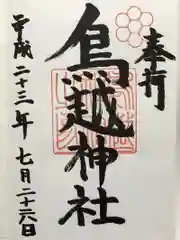 奉行
鳥越神社
平成二十三年七月二十六日